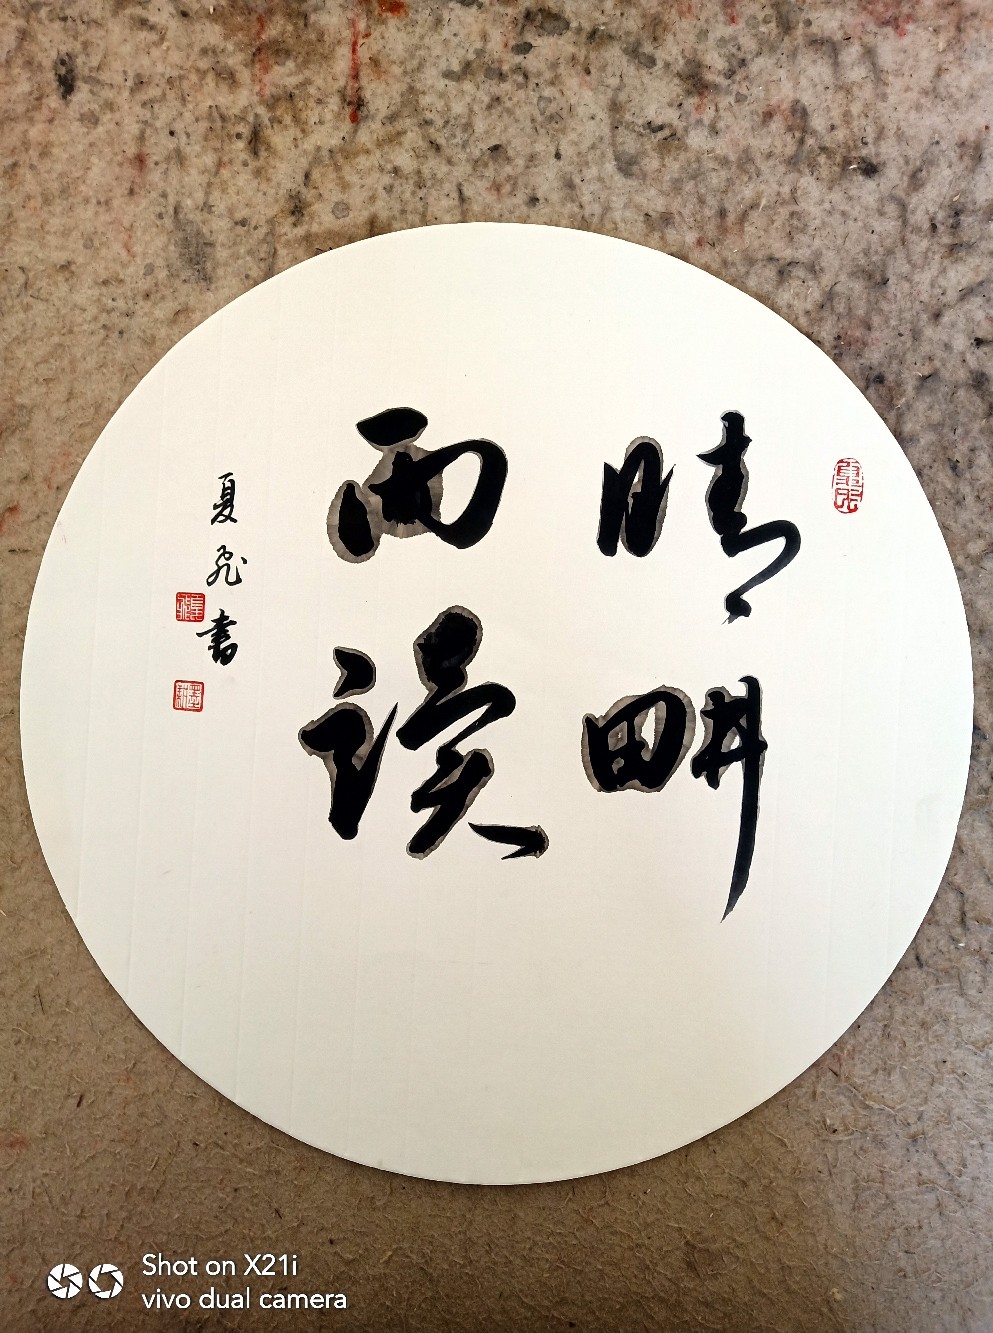 晴畊
雨读
夏飛書
Shot on X21i
vivo dual camera